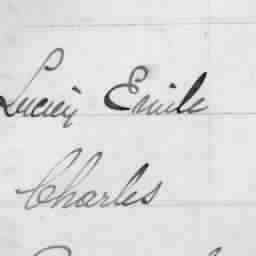 Lucien Emile
Charles